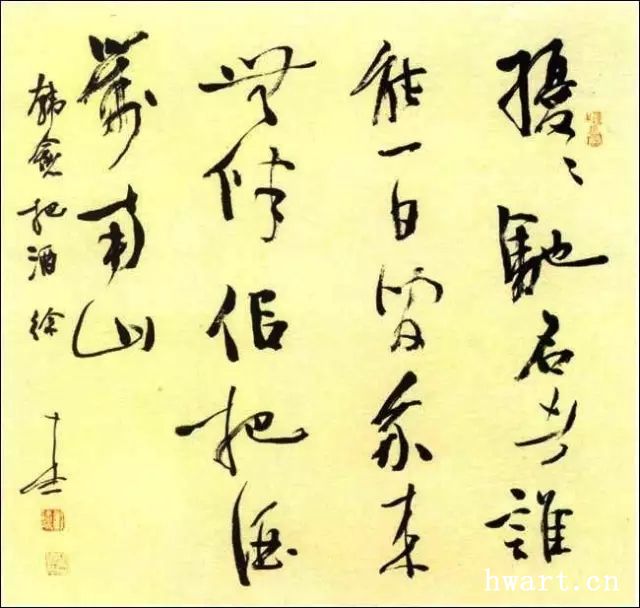 擾〻馳名者誰
能一日閒我來
無伴侶把酒
對南山
韓愈把酒 徐
hwart.cn